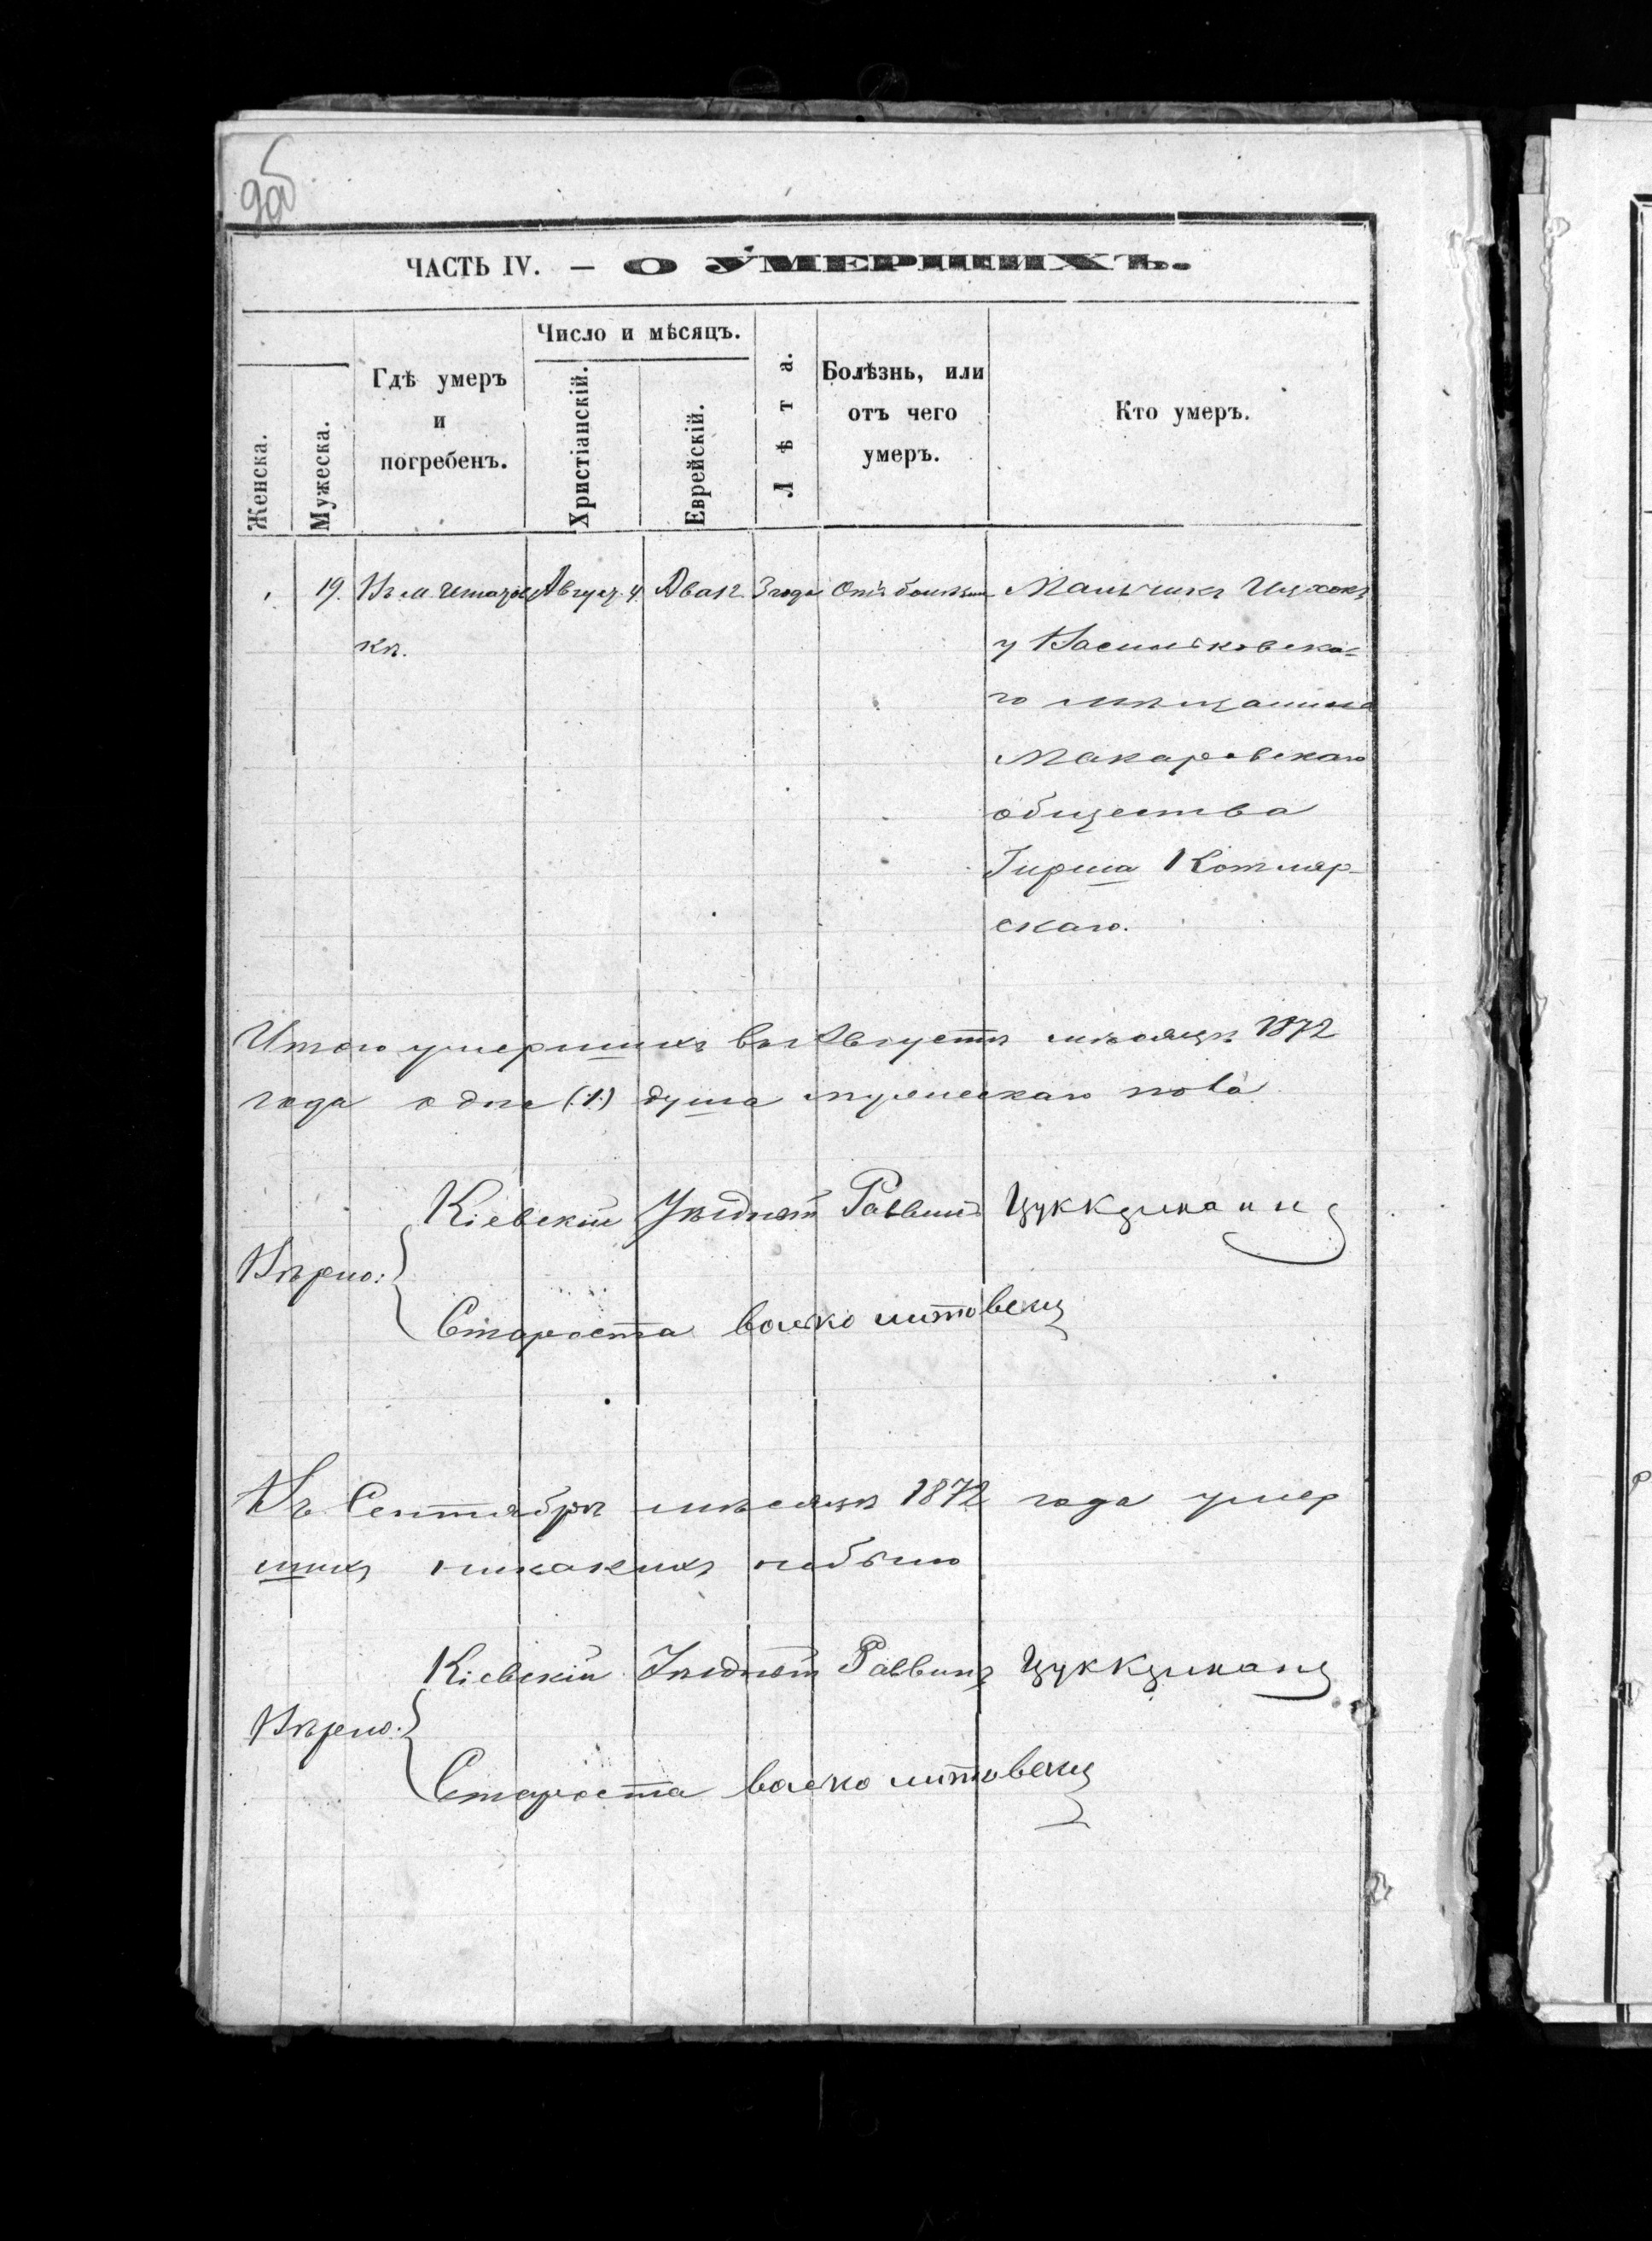 ЧАСТЬ IV. — О УМЕРШИХЪ.
Женска.
Мужеска.
Гдѣ умеръ и погребенъ.
Число и мѣсяцъ.
Христіанскій.
Еврейскій.
Лѣта.
Болѣзнь, или отъ чего умеръ.
Кто умеръ.
19. Въ м. Августа 4 Ава 12 3 года Отъ Мальчикъ Ицхокъ
у Васильковска-
го мѣщанина
Макаровскаго
общества
Гирша Котляр-
скаго.
Итого умершихъ въ Августѣ мѣсяцѣ 1872
года одна (1) душа мужескаго пола
Кіевскій Уѣздный Раввинъ Цуккерманъ
Вѣрно:
Староста литовецъ
Въ Сентябрѣ мѣсяцѣ 1872 года умер
шихъ никакихъ небыло
Кіевскій Уѣздный Раввинъ Цуккерманъ
Вѣрно:
Староста литовецъ